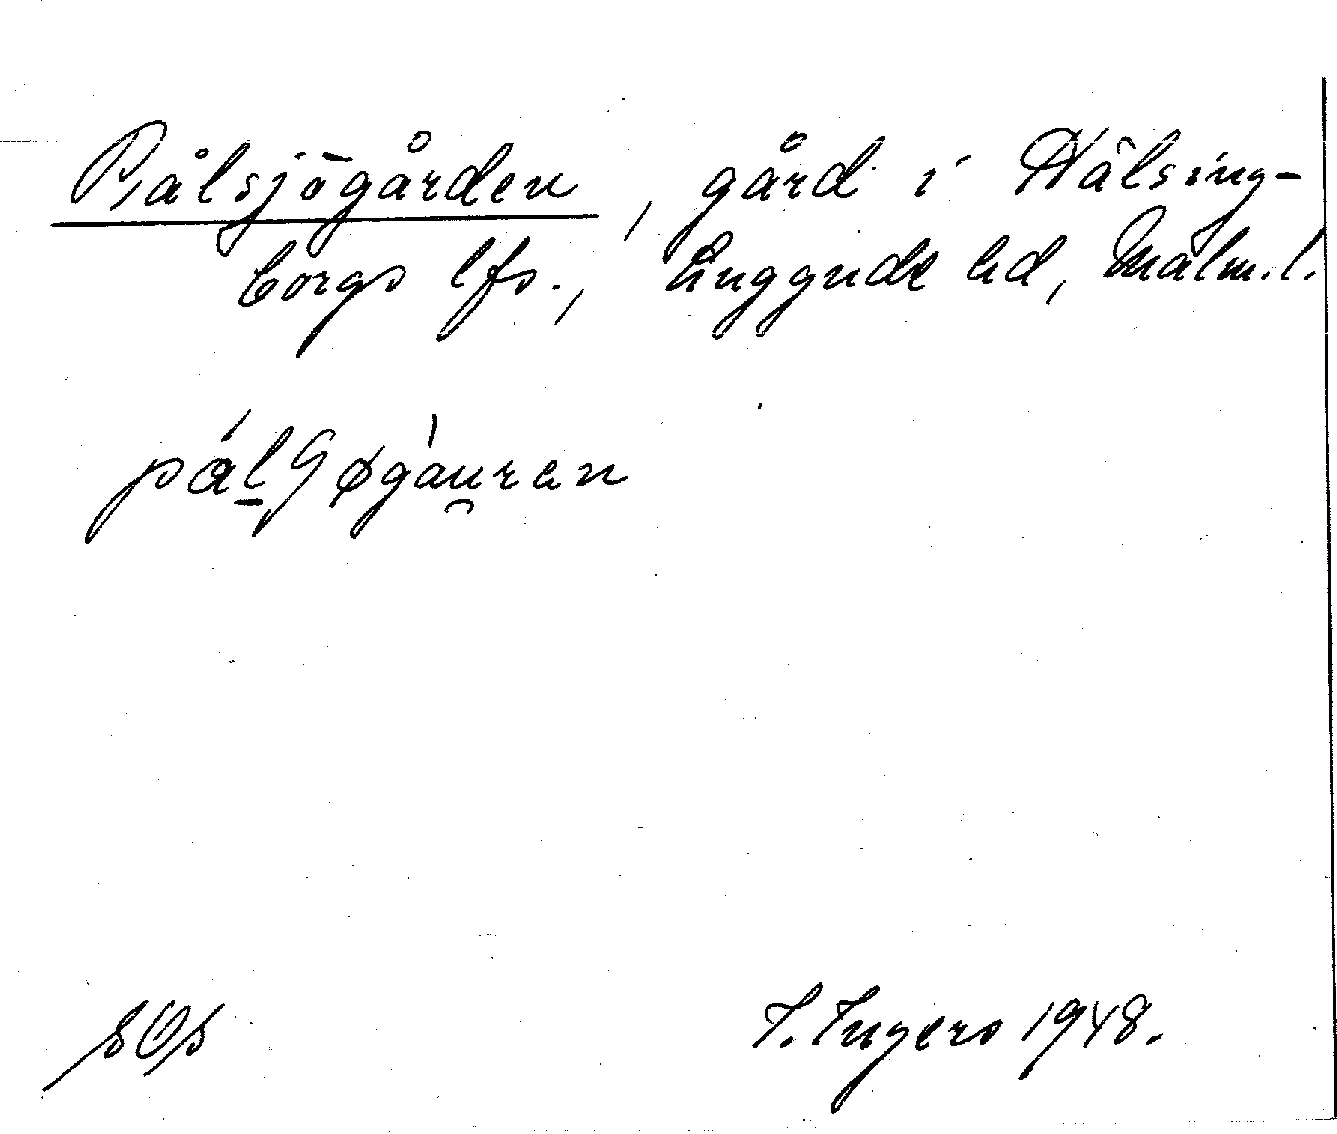 Pålsjögården, gård i Hälsing-
borgs lfs., Luggude hd, Malm.l.
pålʃøgau̯ran
I. Ingers 1948.